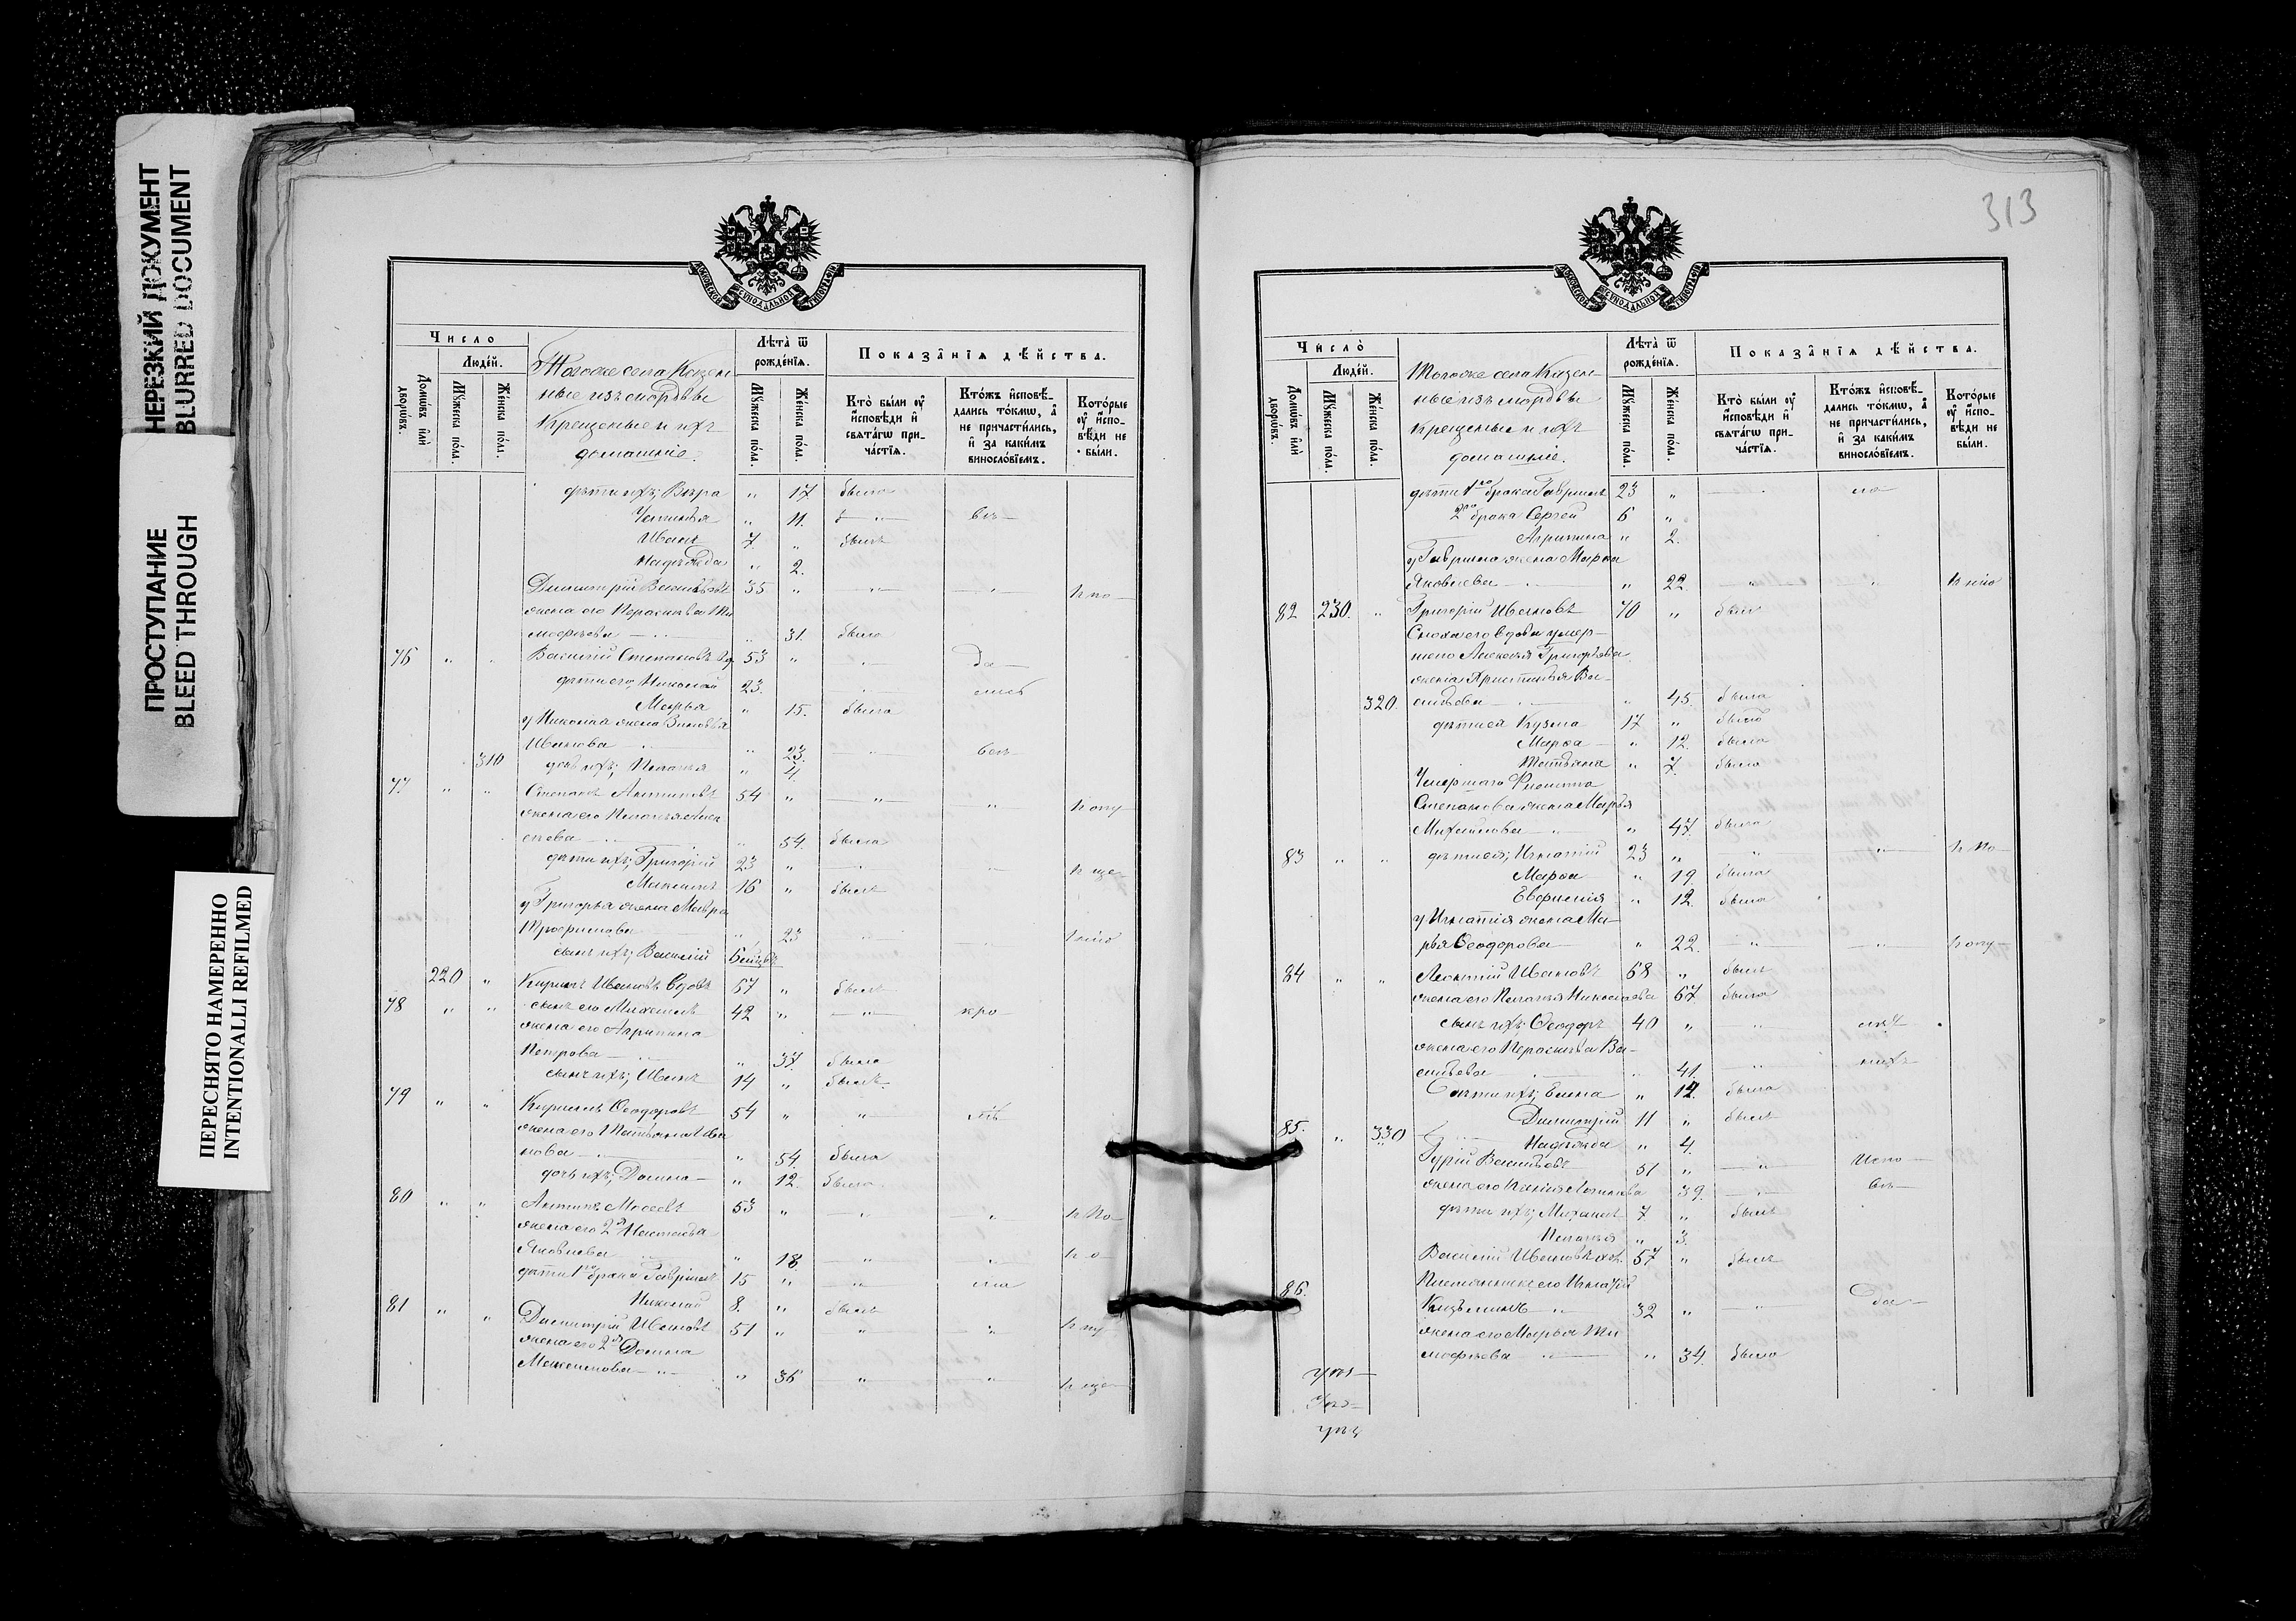 НЕРЕЗКИЙ ДОКУМЕНТ
BLURRED DOCUMENT
ПРОСТУПАНИЕ
BLEED THROUGH
ПЕРЕСНЯТО НАМЕРЕННО
INTENTIONALLI REFILMED
МОСКОВСКОЙ СѴНОДАЛЬНОЙ ТИПОГРАФІИ
Число
Людей.
Домѡвъ или дворѡвъ.
Мꙋжеска пола.
Женска пола.
Тогоже села Казен-
ные изъ мордвы
Крещеные и ихъ
домашніе.
Лѣта ѿ рожденія.
Мꙋжеска пола.
Женска пола.
Показанія дѣйства.
Кто были оу исповѣди и свѧтагѡ причастія.
Ктожъ исповѣдались токмѡ, а не причастились, и за какимъ винословіемъ.
Которые оу исповѣди не были.
дѣти ихъ; Вѣра " 17 была
Устинья " 11. " въ
Иванъ 7. " былъ
Надежда " 2.
Димитрій Васильевъ 35 " " " по
жена его Параскева Ти
мофѣева " 31. была
76 " " Василій Степановъ вд. 53 " " да
дѣти его, Николай 23. "
Марья " 15. была
у Николая жена Зиновья
Иванова " 23. "
310 дочь ихъ; Пелагея " 4.
77 " " Степанъ Антиповъ 54 " " "
жена его Пелагея Алек
сѣева " 54. была
дѣти ихъ; Григорій 23 " " "
Максимъ 16 " былъ
у Григорья жена Мавра
Трофимова " 23 " "
сынъ ихъ; Василій 6 мѣсяц.
220 " Кирилъ Ивановъ вдовъ 67 " былъ
78 " " сынъ его Михаилъ 42 " "
жена его Агрипина
Петрова " 37. была
сынъ ихъ; Иванъ 14 " былъ
79 " " Кирилъ Ѳеодоровъ 54 " "
жена его Татьяна Ива
нова " 54. была
дочь ихъ; Домна " 12. была
80 " " Антипъ Мосеевъ 53 " " "
жена его 2я Настасья
Яковлева " 18. " "
дѣти 1го брака Гаврилъ 15 " "
Николай 8. " былъ
81 " " Димитрій Ивановъ 51 " " "
жена его 2я Домна
Максимова " 36 " "
313
МОСКОВСКОЙ СѴНОДАЛЬНОЙ ТИПОГРАФІИ
Число
Людей.
Домѡвъ или дворѡвъ.
Мꙋжеска пола.
Женска пола.
Тогоже села Казен-
ные изъ мордвы
крещеные и ихъ
домашніе.
Лѣта ѿ рожденія.
Мꙋжеска пола.
Женска пола.
Показанія дѣйства.
Кто были оу исповѣди и свѧтагѡ причастія.
Ктожъ исповѣдались токмѡ, а не причастились, и за какимъ винословіемъ.
Которые оу исповѣди не были.
дѣти 1го брака Гаврилъ 23 "
2го брака Сергей 6 "
Агрипина " 2.
у Гаврила жена Марья
Яковлева " 22. " "
82 230. " Григорій Ивановъ 70 " былъ
Сноха его вдова умер-
шего Алексея Григорьева
жена Христинья Ва-
320. сильева " 45. была
дѣти ея Кузма 17 " былъ
Марѳа " 12. была
Татьяна " 7. была
Умершаго Филиппа
Степанова жена Марья
Михайлова " 47. была
83 " " дѣти ея; Игнатій 23 " " " по
Марѳа " 19. была
Евфимія " 12. была
у Игнатія жена Ма-
рья Ѳеодорова " 22. " "
84 " " Леонтій Ивановъ 68 " былъ
жена его Пелагея Николаева 67 была
сынъ ихъ; Ѳеодоръ 40 " "
жена его Параскева Ва-
сильева " 41. "
Дѣти ихъ; Елена " 14. была
Димитрій 11 " былъ
85. " 330 Надежда " 4.
Гурій Васильевъ 51 " "
жена его Ксенія Логинова 39. "
дѣти ихъ; Михаилъ 7 " былъ
Пелагея " 3.
Василій Ивановъ 57 " былъ
86. Племянникъ его Игнатій
Кузьминъ 32 " " да
жена его Марья Ти
мофѣева " 34. была